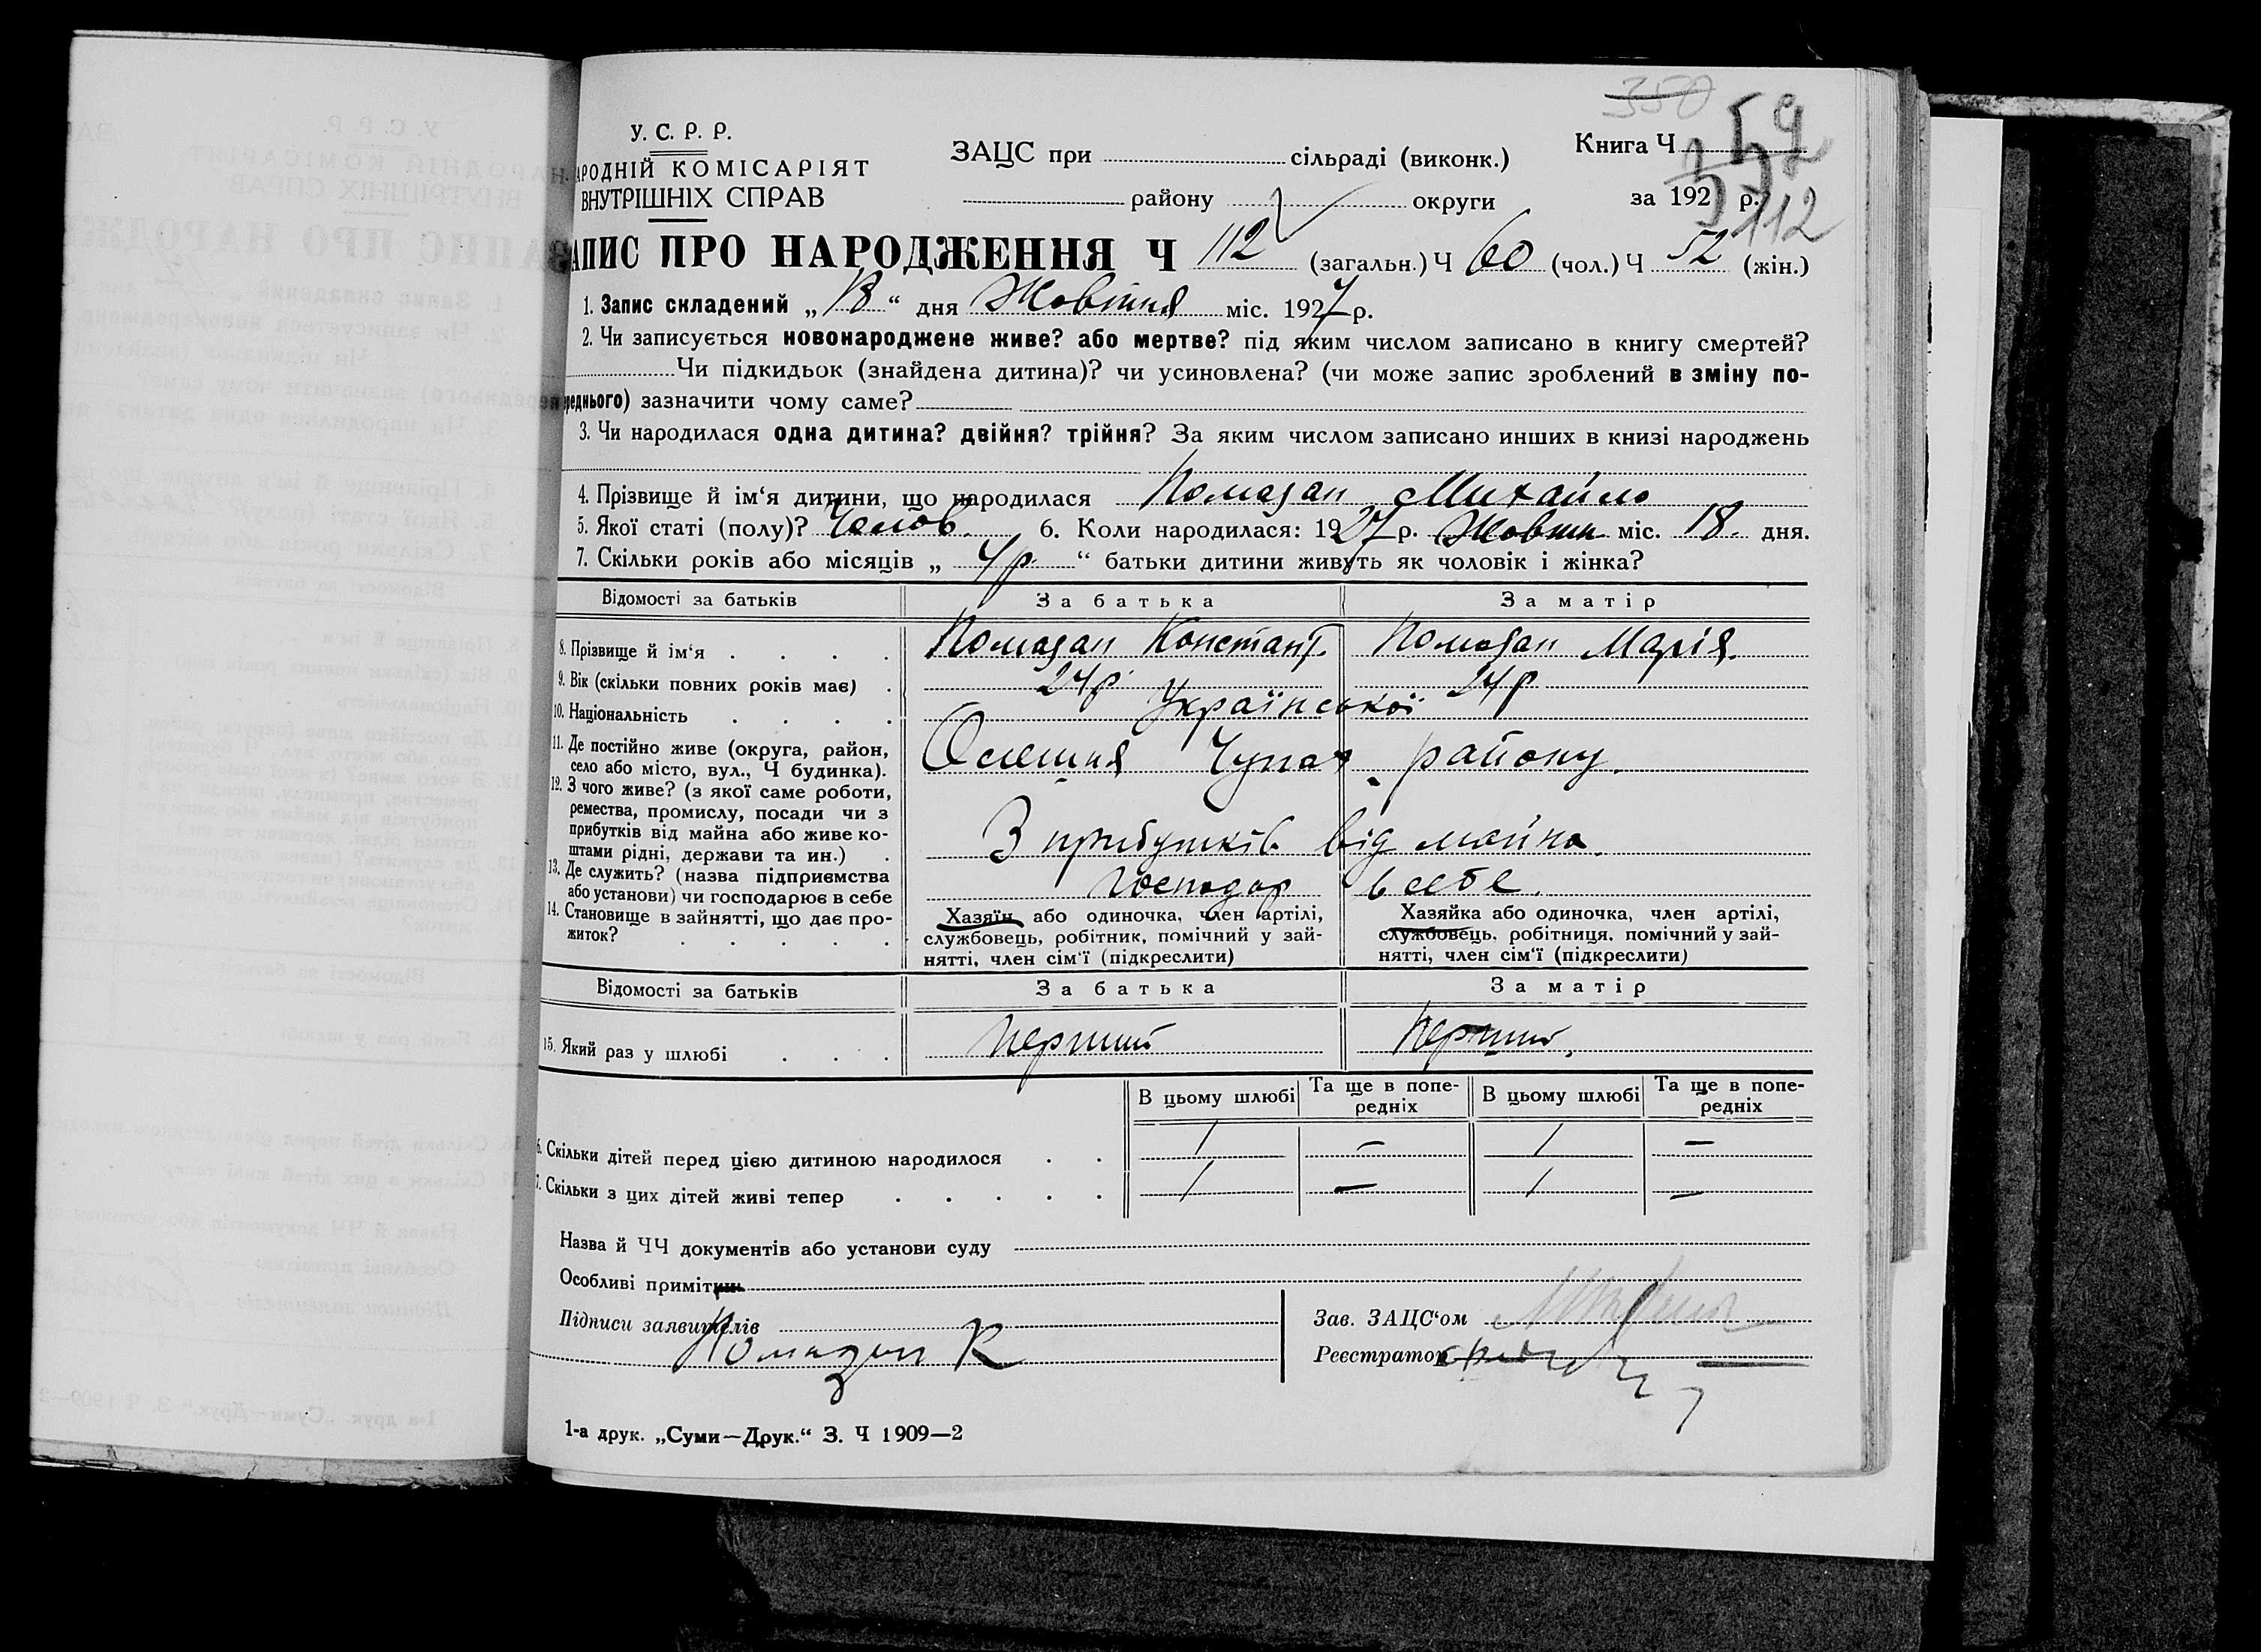 350
У. С. Р. Р.
НАРОДНІЙ КОМІСАРІЯТ
ВНУТРІШНІХ СПРАВ
ЗАЦС при сільраді (виконк.)
району округи
Книга Ч 59
за 192 р.
112
ЗАПИС ПРО НАРОДЖЕННЯ Ч 112 (загальн.) Ч 60 (чол.) Ч 52 (жін.)
1. Запис складений „ 18 “ дня Жовтня міс. 1927 р.
2. Чи записується новонароджене живе? або мертве? під яким числом записано в книгу смертей?
Чи підкидьок (знайдена дитина)? чи усиновлена? (чи може запис зроблений в зміну по-
переднього) зазначити чому саме?
3. Чи народилася одна дитина? двійня? трійня? За яким числом записано инших в книзі народжень
4. Прізвище й ім‘я дитини, що народилася Помазан Михайло
5. Якої статі (полу)? Чолов. 6. Коли народилася: 1927 р. Жовтн міс. 18. дня.
7. Скільки років або місяців „ 4 р. “ батьки дитини живуть як чоловік і жінка?
Відомості за батьків За батька За матір
8. Прізвище й ім‘я Помазан Констант. Помазан Марія.
9. Вік (скільки повних років має) 24 р. 24 р
10. Національність Української
11. Де постійно живе (округа, район,
село або місто, вул., Ч будинка). Олешня Чупах. району.
12. З чого живе? (з якої саме роботи,
ремества, промислу, посади чи з
прибутків від майна або живе ко-
штами рідні, держави та ин.) З прибутків від майна.
13. Де служить? (назва підприємства
або установи) чи господарює в себе господар в себе.
14. Становище в зайнятті, що дає про-
житок?
Хазяїн або одиночка, член артілі,
службовець, робітник, помічний у зай-
нятті, член сім‘ї (підкреслити)
Хазяйка або одиночка, член артілі,
службовець, робітниця, помічний у зай-
нятті, член сім‘ї (підкреслити)
Відомості за батьків За батька За матір
15. Який раз у шлюбі перший перший.
В цьому шлюбі Та ще в попе-
редніх В цьому шлюбі Та ще в попе-
редніх
6. Скільки дітей перед цією дитиною народилося 1 – 1 –
7. Скільки з цих дітей живі тепер 1 – 1 –
Назва й ЧЧ документів або установи суду
Особливі примітки
Підписи заявителів
Помазан К
Зав. ЗАЦС‘ом
Реєстратор
1-а друк. „Суми—Друк.“ З. Ч 1909—2